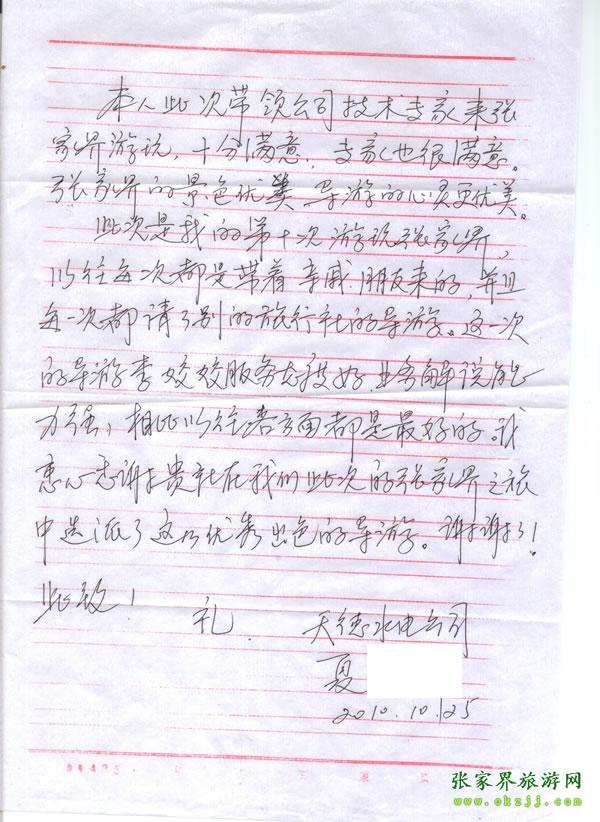 本人此次带领公司技术专家来张
家界游玩,十分满意,专家也很满意。
张家界的景色优美 导游的心灵更优美。
此次是我的第十次游玩张家界,
以往每次都是带着亲戚朋友来的,并且
每一次都请了别的旅行社的导游。这一次
的导游李姣姣服务态度好 业务解说能
力强,相比以往各方面都是最好的。我
衷心感谢贵社在我们此次的张家界之旅
中选派了这么优秀出色的导游。谢谢了!
此致!
礼.
天德水电公司
夏
2010.10.25
张家界旅游网
www.okzjj.com